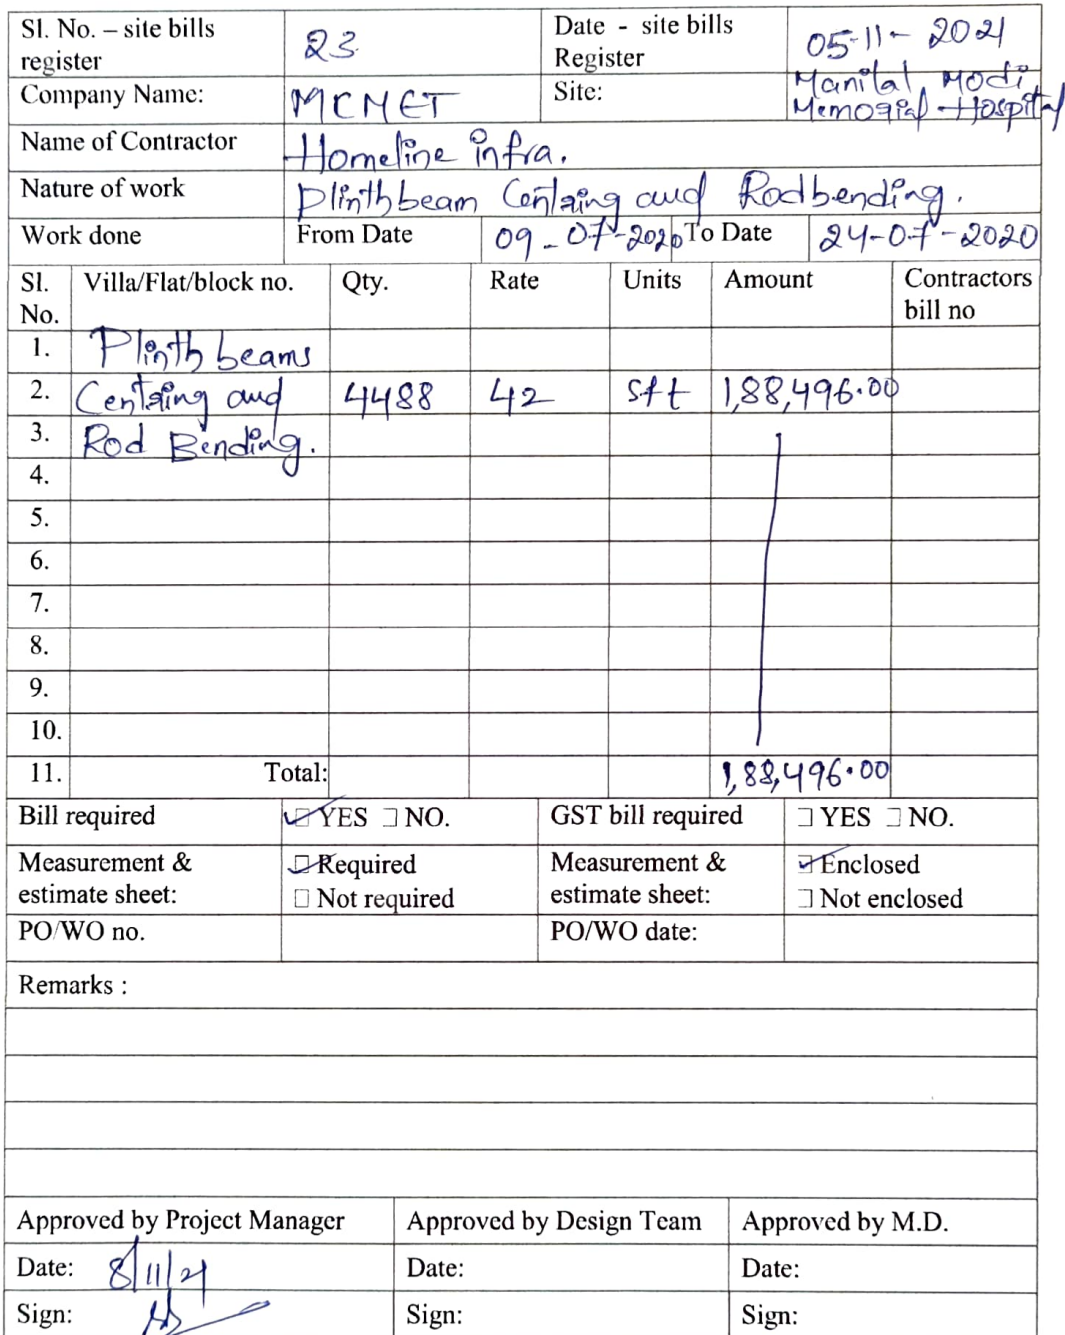 Sl. No. – site bills register 23 Date - site bills Register 05-11-2021
Company Name: MCMET Site: Manilal Modi Memorial Hospital
Name of Contractor Homeline infra.
Nature of work Plinth beam Centring and Rod bending.
Work done From Date 09-07-2020 To Date 24-07-2020
Sl. No. Villa/Flat/block no. Qty. Rate Units Amount Contractors bill no
1. Plinth beams
2. Centring and 4488 42 sft 1,88,496.00
3. Rod Bending.
4.
5.
6.
7.
8.
9.
10.
11. Total: 1,88,496.00
Bill required YES NO. GST bill required YES NO.
Measurement & estimate sheet: Required Not required Measurement & estimate sheet: Enclosed Not enclosed
PO/WO no. PO/WO date:
Remarks :
Approved by Project Manager Approved by Design Team Approved by M.D.
Date: 8/11/21 Date: Date:
Sign: Sign: Sign: